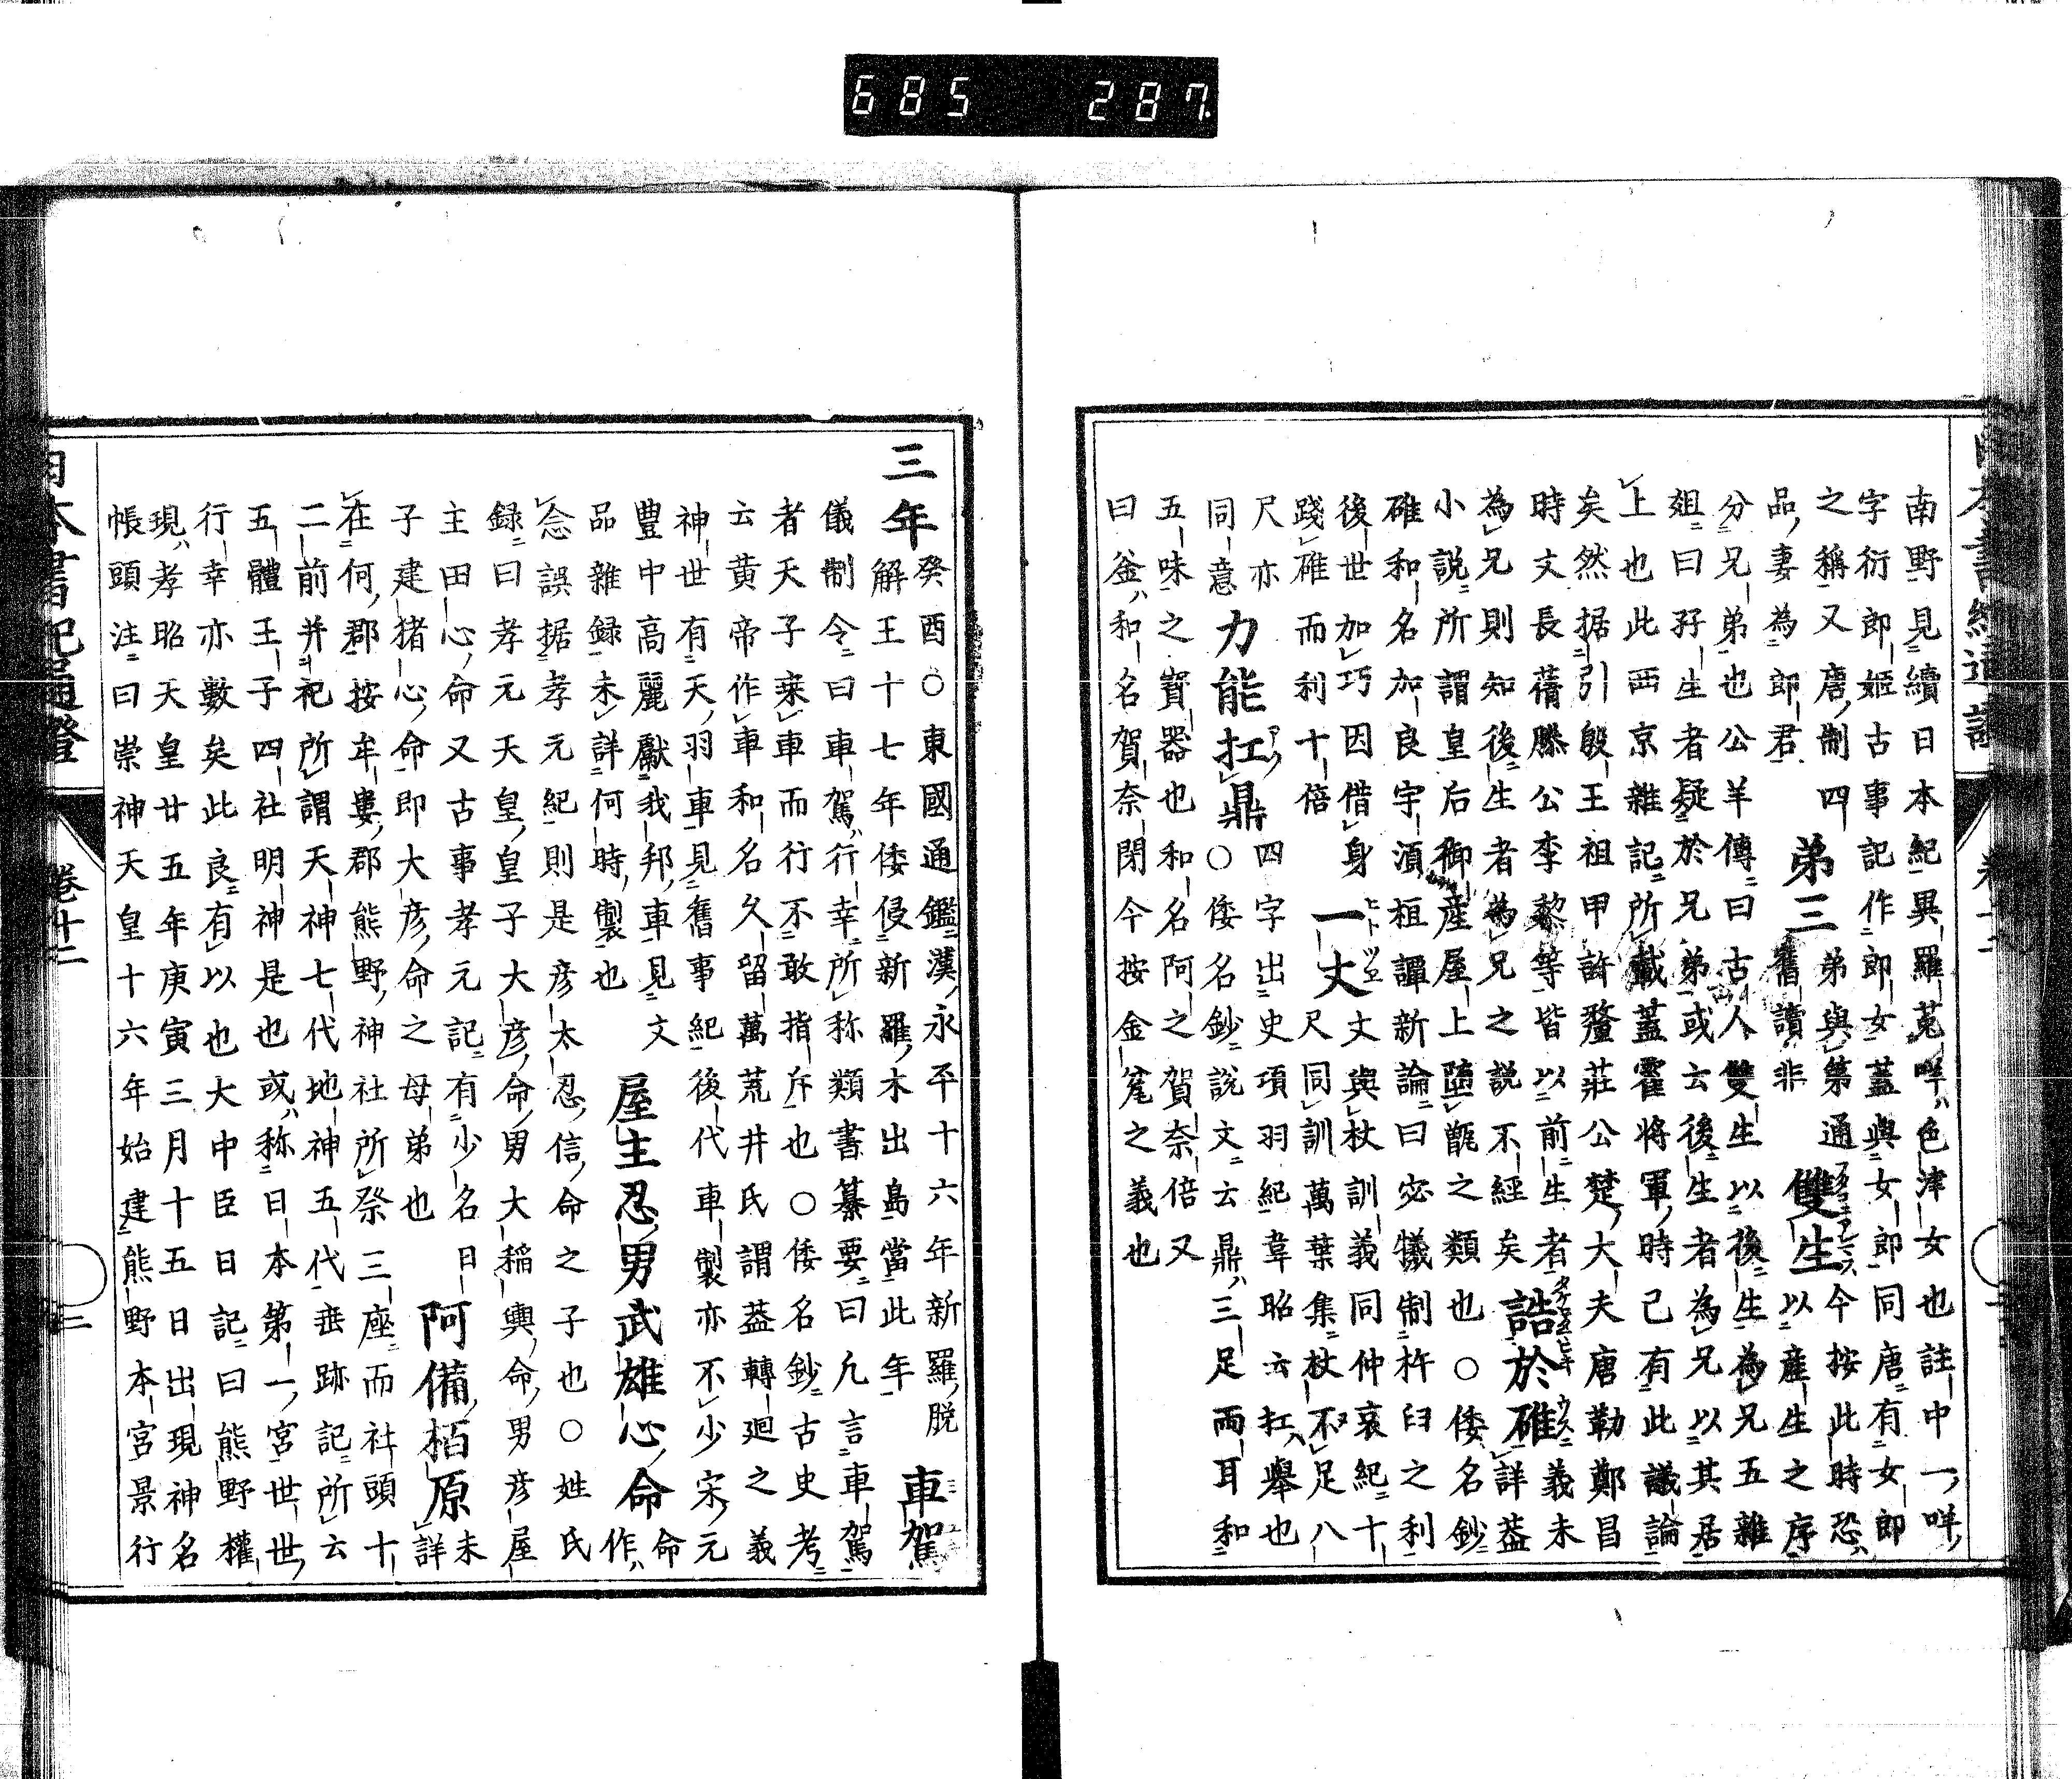 685 287
南野見續日本紀異羅菟咩ハ色津女也註中一咩
字衍郎姬古事記作郎女蓋與女郎同唐有女郎
之稱又唐制四
品妻為郎君
弟三
弟與第通
舊讀非
雙生
今按此時恐ハ
以産生之序
分兄弟也公羊傳曰古人雙生以後生為兄五雜
爼曰孖生者疑於兄弟或云後生者為兄以其居
上也此西京雜記所載蓋霍將軍時已有此議論
矣然据引殷王祖甲許釐莊公楚大夫唐勒鄭昌
時文長蒨滕公李黎等皆以前生者
為兄則知後生者為兄之説不經矣
誥於碓
義未
詳蓋
小説所謂皇后御産屋上堕甑之類也○倭名鈔
碓和名加良宇湏桓譚新論曰宓犧制杵臼之利
後世加巧因借身
踐碓而利十倍
一丈
丈與杖訓義同仲哀紀十
尺同訓萬葉集杖不足八
尺亦
同意
力能扛鼎
四字出史項羽紀韋昭云扛ハ舉也
○倭名鈔説文云鼎ハ三足兩耳和
五味之寳器也和名阿之賀奈倍又
曰釡ハ和名賀奈閇今按金瓫之義也
三年
癸酉○東國通鑑漢永平十六年新羅脱
解王十七年倭侵新羅木出島當此年
車駕
儀制令曰車駕ハ行幸所称類書纂要曰凡言車駕
者天子乗車而行不敢指斥也○倭名鈔古史考
云黄帝作車和名久留萬荒井氏謂蓋轉廻之義
神世有天羽車見舊事紀後代車製亦不少宋元
豊中高麗獻我邦車見文
品雜録未詳何時製也
屋主忍男武雄心命
命
作ハ
念誤据孝元紀則是彦太忍信命之子也○姓氏
録曰孝元天皇皇子大彦命男大稲輿命男彦屋
主田心命又古事孝元記有少名日
子建猪心命即大彦命之母弟也
阿備柏原
未
詳
在何郡按牟婁郡熊野神社所祭三座而社頭十
二前并祀所謂天神七代地神五代垂跡記所云
五體王子四社明神是也或ハ称日本第一宮世世
行幸亦數矣此良有以也大中臣日記曰熊野權
現ハ孝昭天皇廿五年庚寅三月十五日出現神名
帳頭注曰崇神天皇十六年始建熊野本宮景行
日本書紀通證
卷十二
三